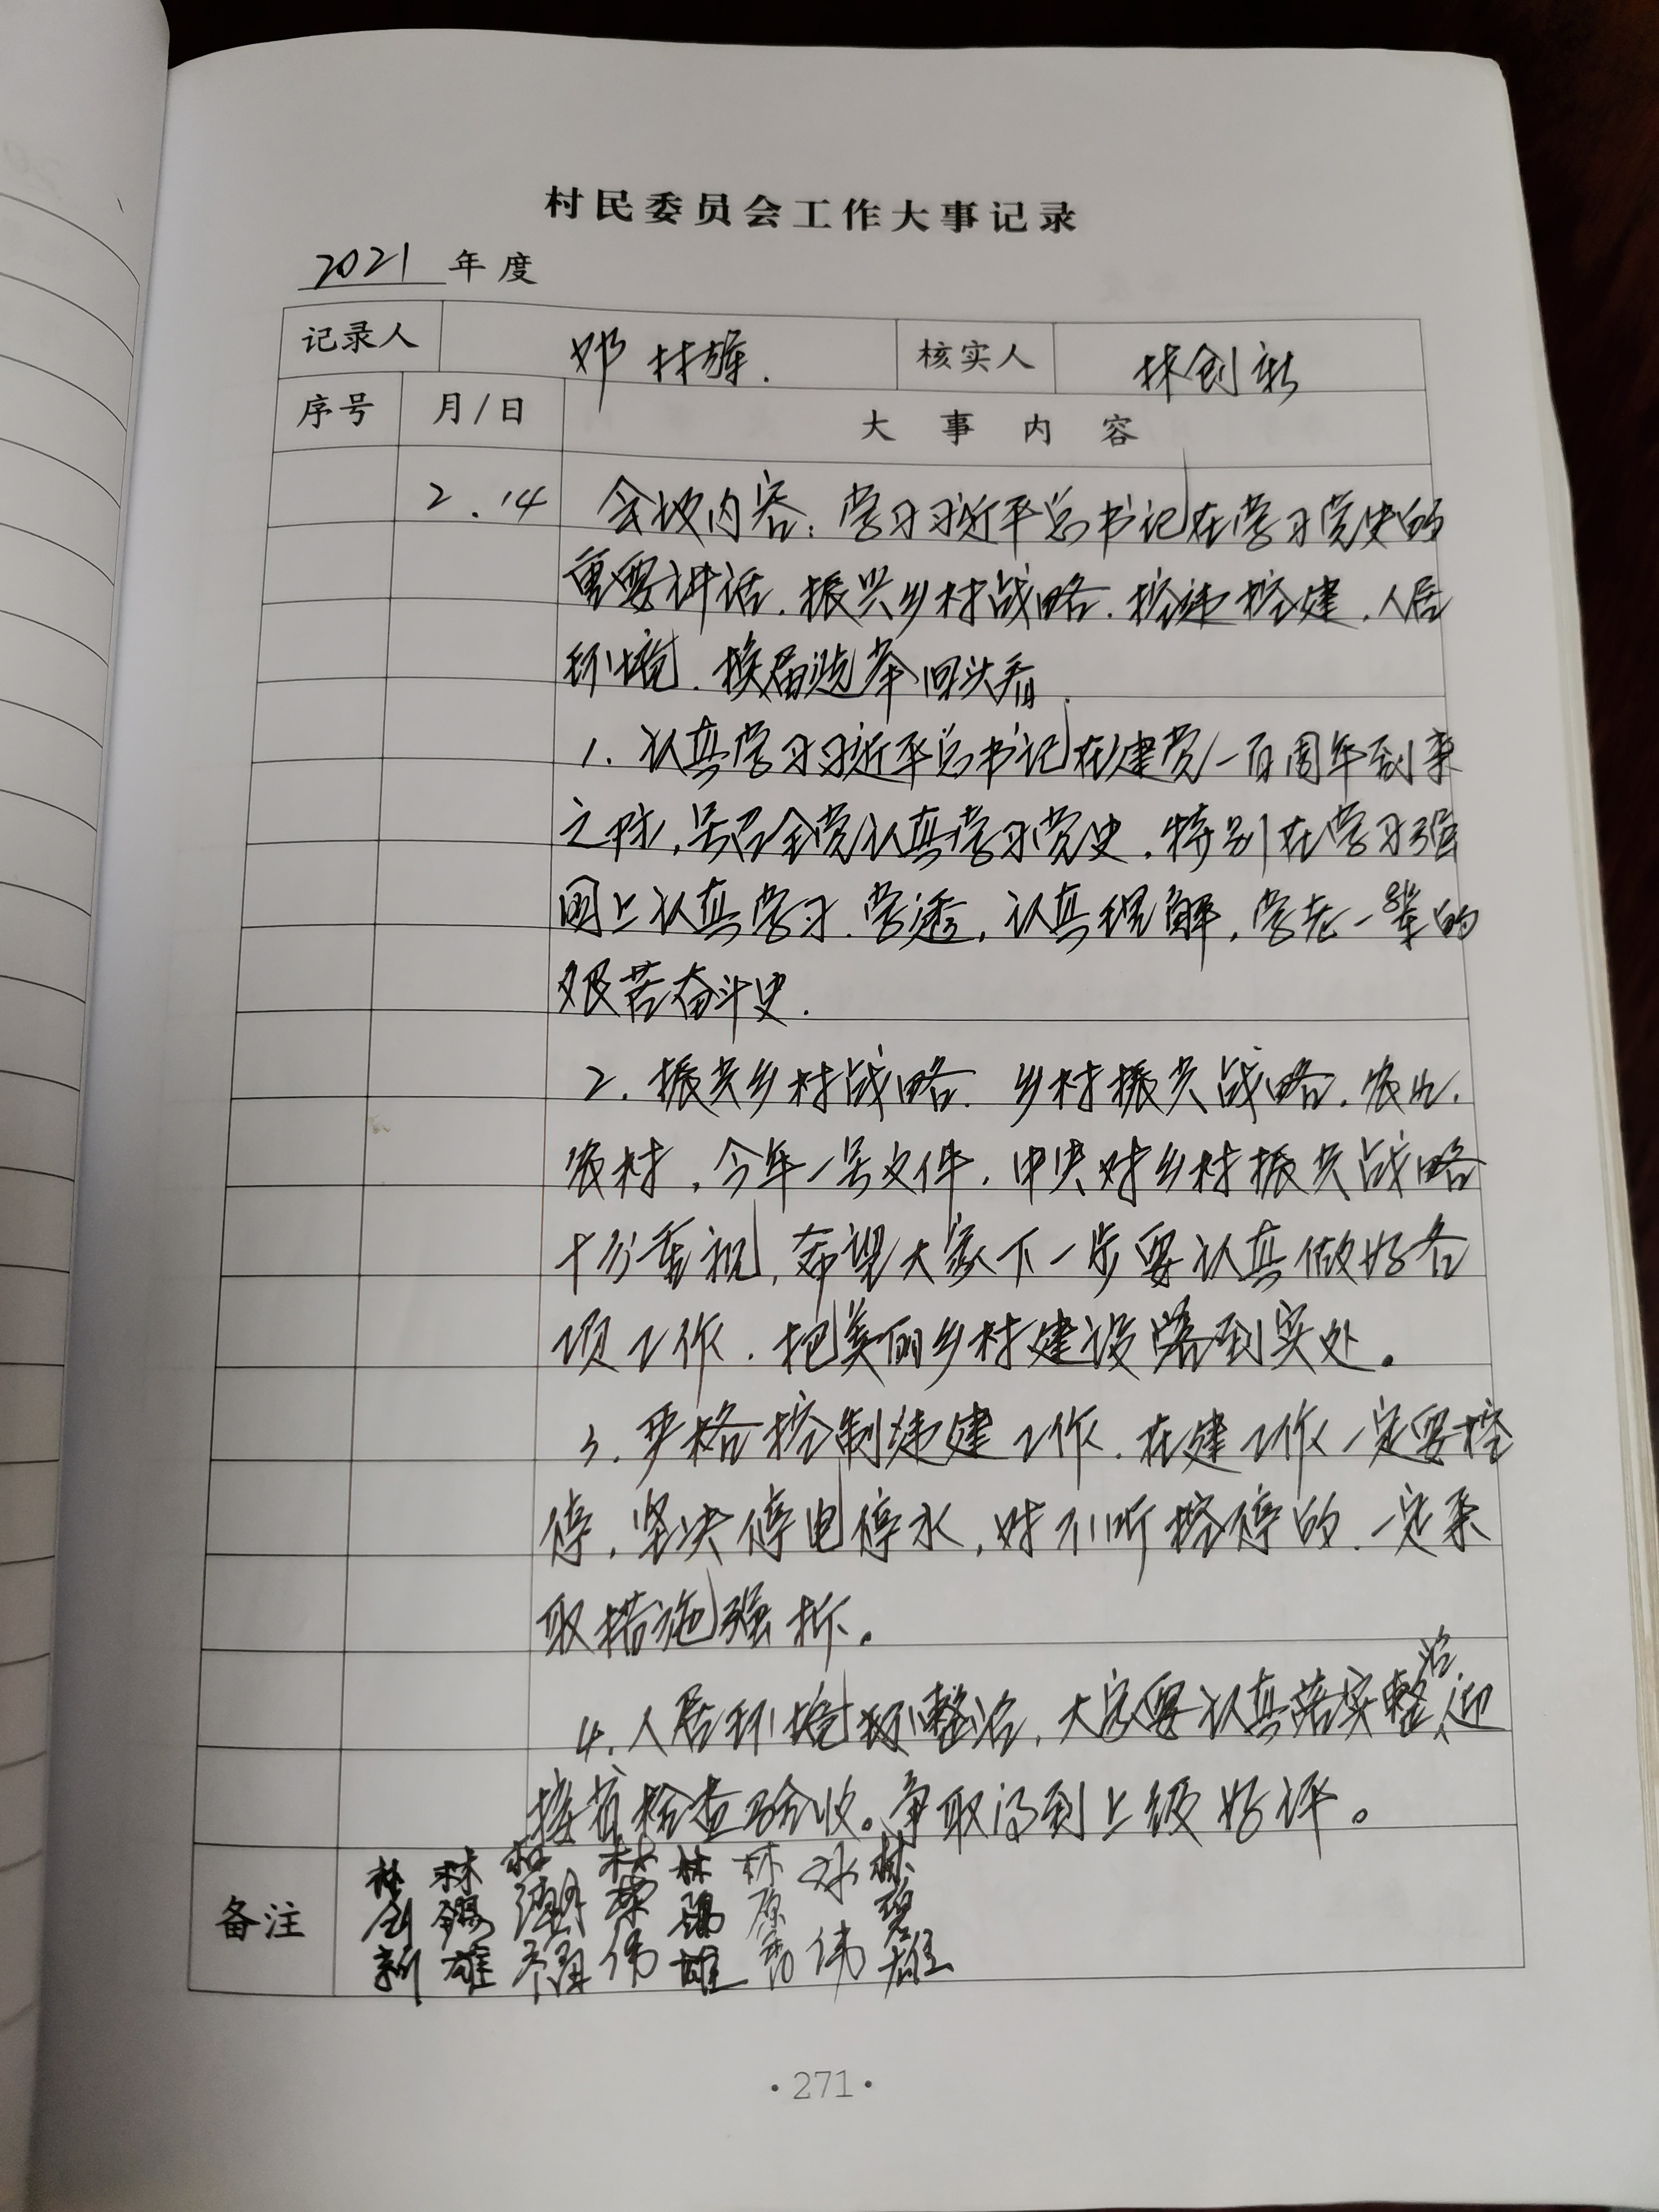 村民委员会工作大事记录
2021 年度
记录人 邓林雄. 核实人 林创新
序号 月/日 大事内容
2.14 会议内容:学习习近平总书记在学习党史的
重要讲话.振兴乡村战略.控违控建.人居
环境.换届选举回头看.
1.认真学习习近平总书记在建党一百周年到来
之际,号召全党认真学习党史.特别在学习强
国上认真学习.学透,认真理解,学老一辈的
艰苦奋斗史.
2.振兴乡村战略.乡村振兴战略.农业.
农村,今年一号文件.中央对乡村振兴战略
十分重视,希望大家下一步要认真做好各
项工作.把美丽乡村建设落到实处。
3.严格控制违建工作.在建工作一定要控
停,坚决停电停水,对不听控停的.一定采
取措施强拆。
4.人居环境整治,大家要认真落实整治,迎
接省检查验收。争取得到上级好评。
备注 林创新 林锡雄 林伟 林雄 林原 伟 林碧雄
·271·